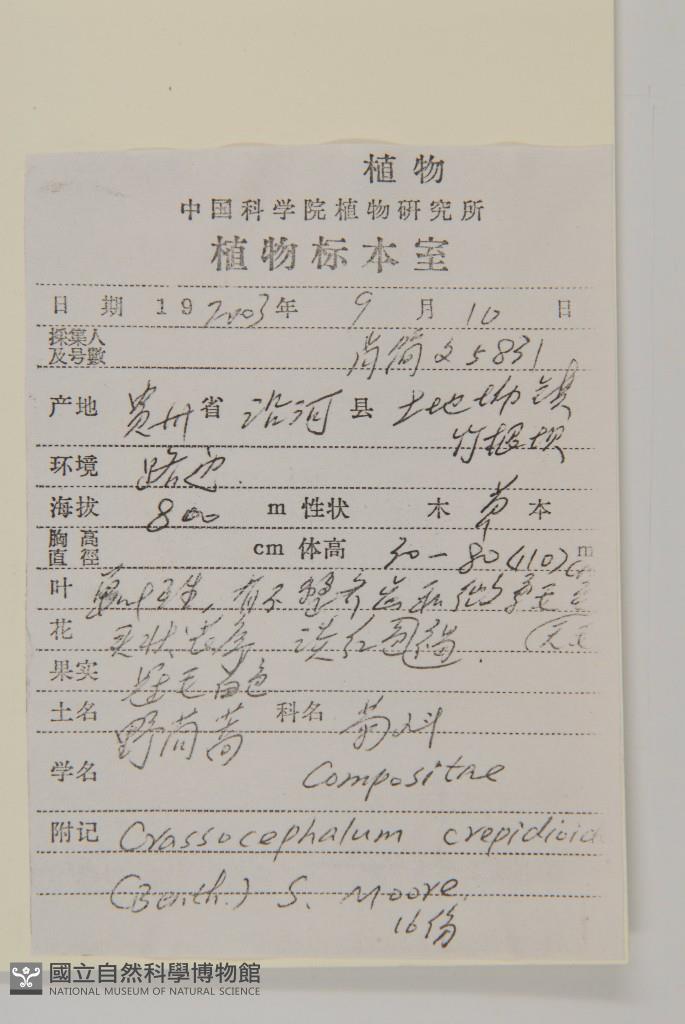 植物
中国科学院植物研究所
植物标本室
日 期 19 2003年 9 月 10 日
採集人
及号數 尚简文 5831
产地 贵州省 沿河县 土地坳镇
竹根坝
环境 路边.
海拔 800 m 性状 木 草 本
胸高
直徑 cm 体高 30-80(110)cm
叶 互生, 有不整齐
花 淡红
果实 冠毛白色
土名 野茼蒿 科名 菊科
学名 Compositae
附记 Crassocephalum crepidioid
(Benth.) S. Moore.
16份
國立自然科學博物館
NATIONAL MUSEUM OF NATURAL SCIENCE